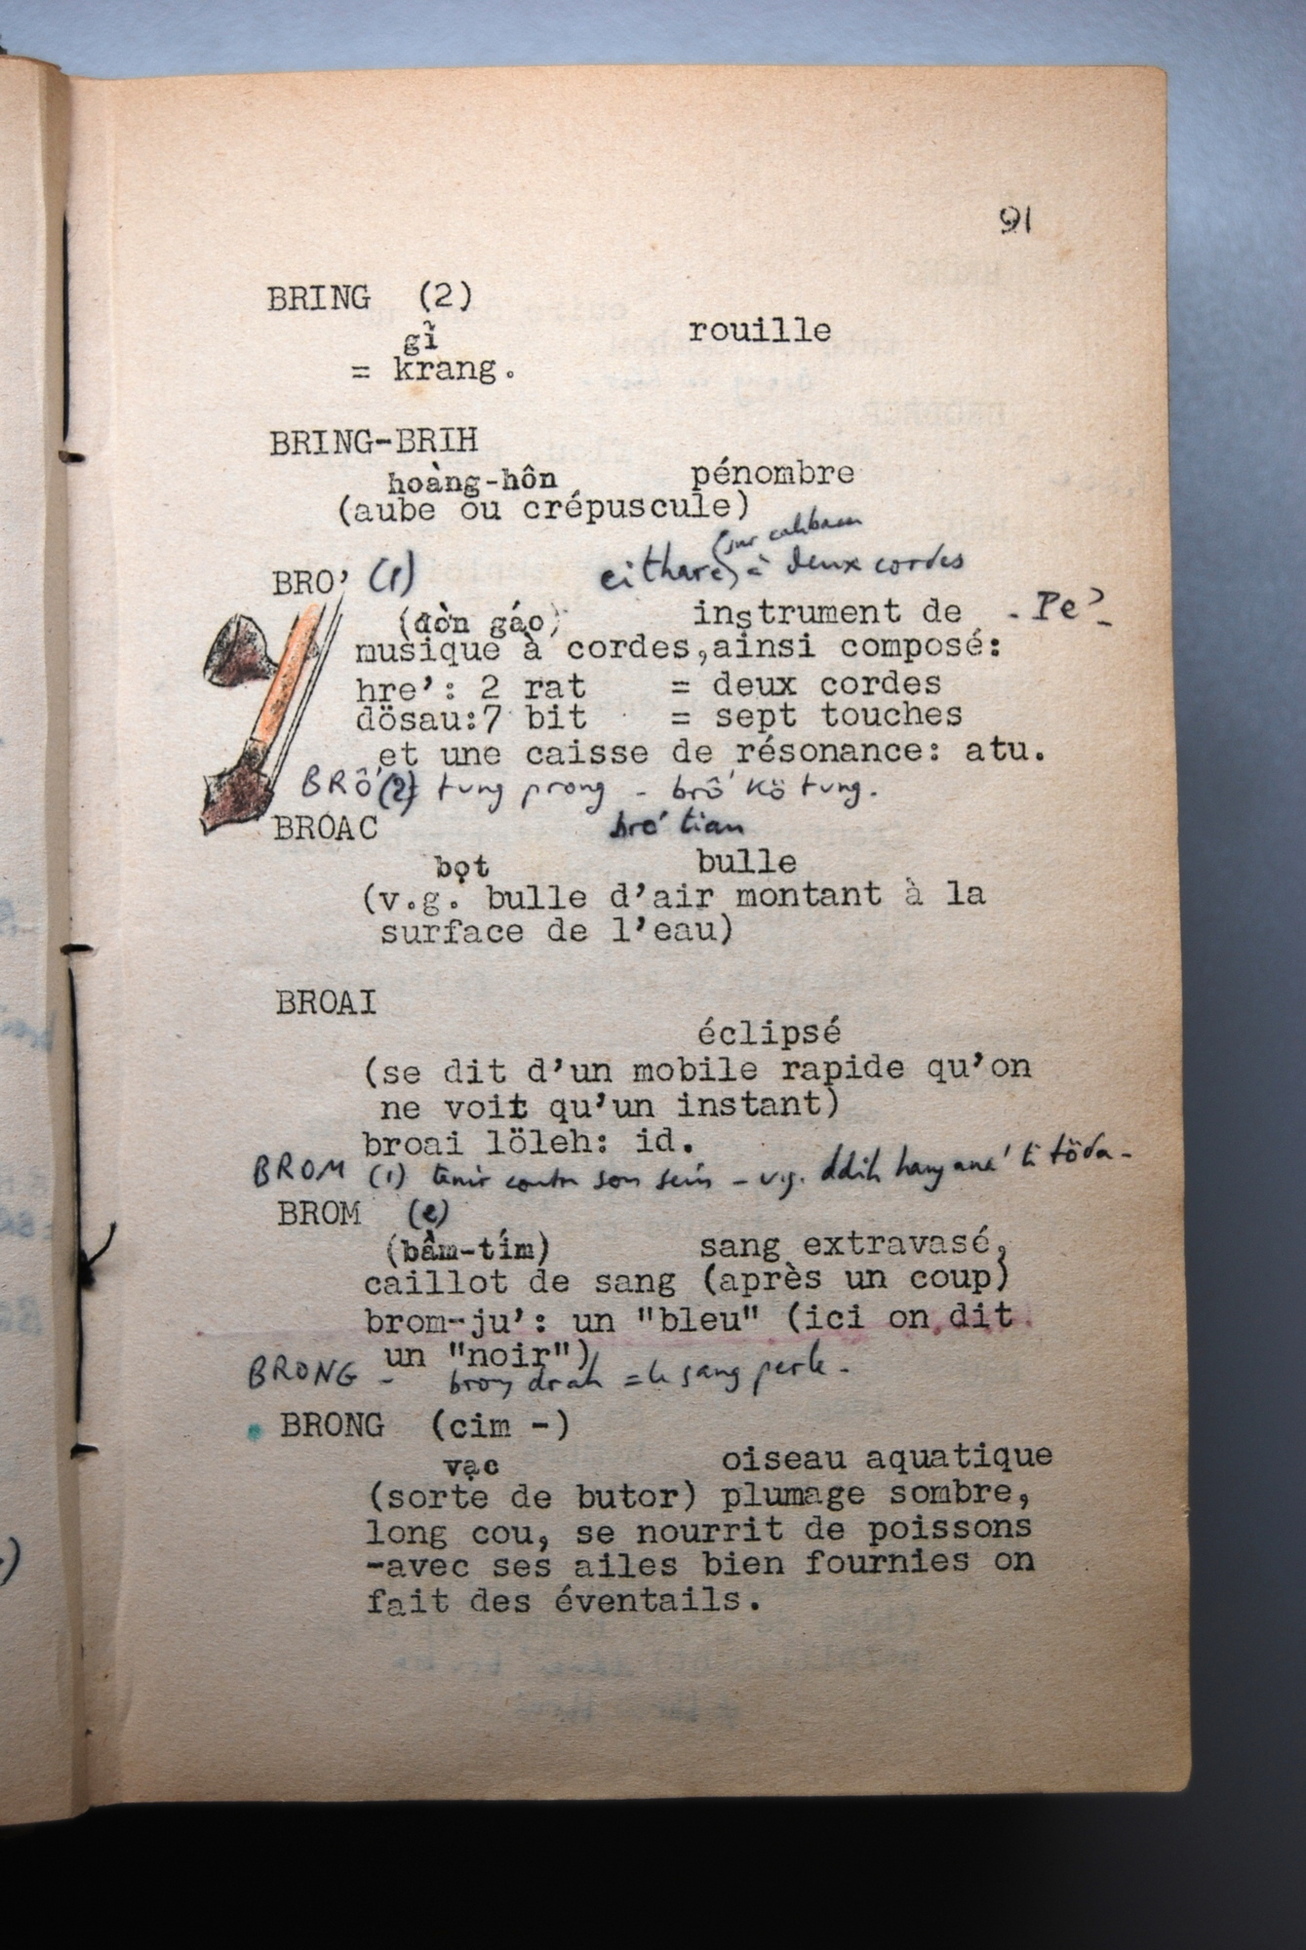 91
BRING (2)
gỉ rouille
= krang.
BRING-BRIH
hoàng-hôn pénombre
(aube ou crépuscule)
(sur calebasse
BRO' (1) cithare) à deux cordes
(đờn gáo) instrument de - Pe?
musique à cordes,ainsi composé:
hre': 2 rat = deux cordes
dösau:7 bit = sept touches
et une caisse de résonance: atu.
BRÔ' (2) tung prong - brô' kö tung.
BROAC bro' tian
bọt bulle
(v.g. bulle d'air montant à la
surface de l'eau)
BROAI
éclipsé
(se dit d'un mobile rapide qu'on
ne voit qu'un instant)
broai löleh: id.
BROM (1) tenir contre son sein - v.g. ddih töda-
BROM (2)
(bầm-tím) sang extravasé,
caillot de sang (après un coup)
brom-ju': un "bleu" (ici on dit
un "noir")
BRONG - brong drah = le sang perle -
BRONG (cim -)
vạc oiseau aquatique
(sorte de butor) plumage sombre,
long cou, se nourrit de poissons
-avec ses ailes bien fournies on
fait des éventails.